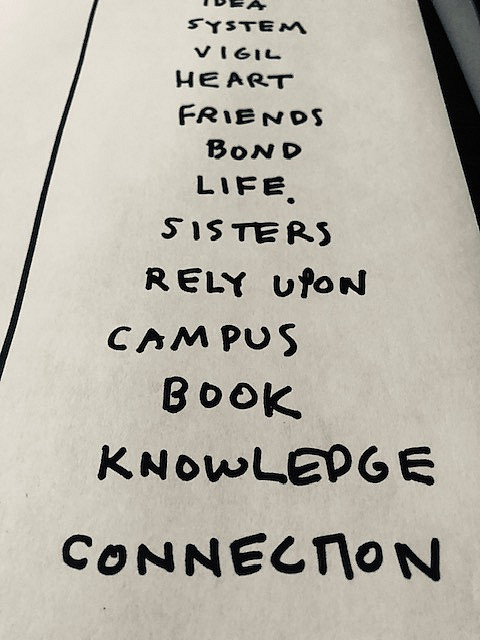 IDEA
SYSTEM
VIGIL
HEART
FRIENDS
BOND
LIFE.
SISTERS
RELY UPON
CAMPUS
BOOK
KNOWLEDGE
CONNECTION